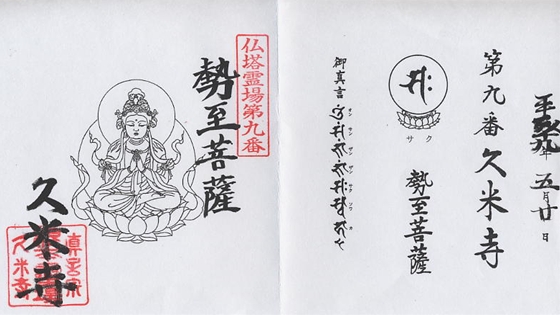 五月廿日
第九番久米寺
サク
勢至菩薩
御真言
仏塔霊場第九番
勢至菩薩
久米寺
真言宗
久米寺